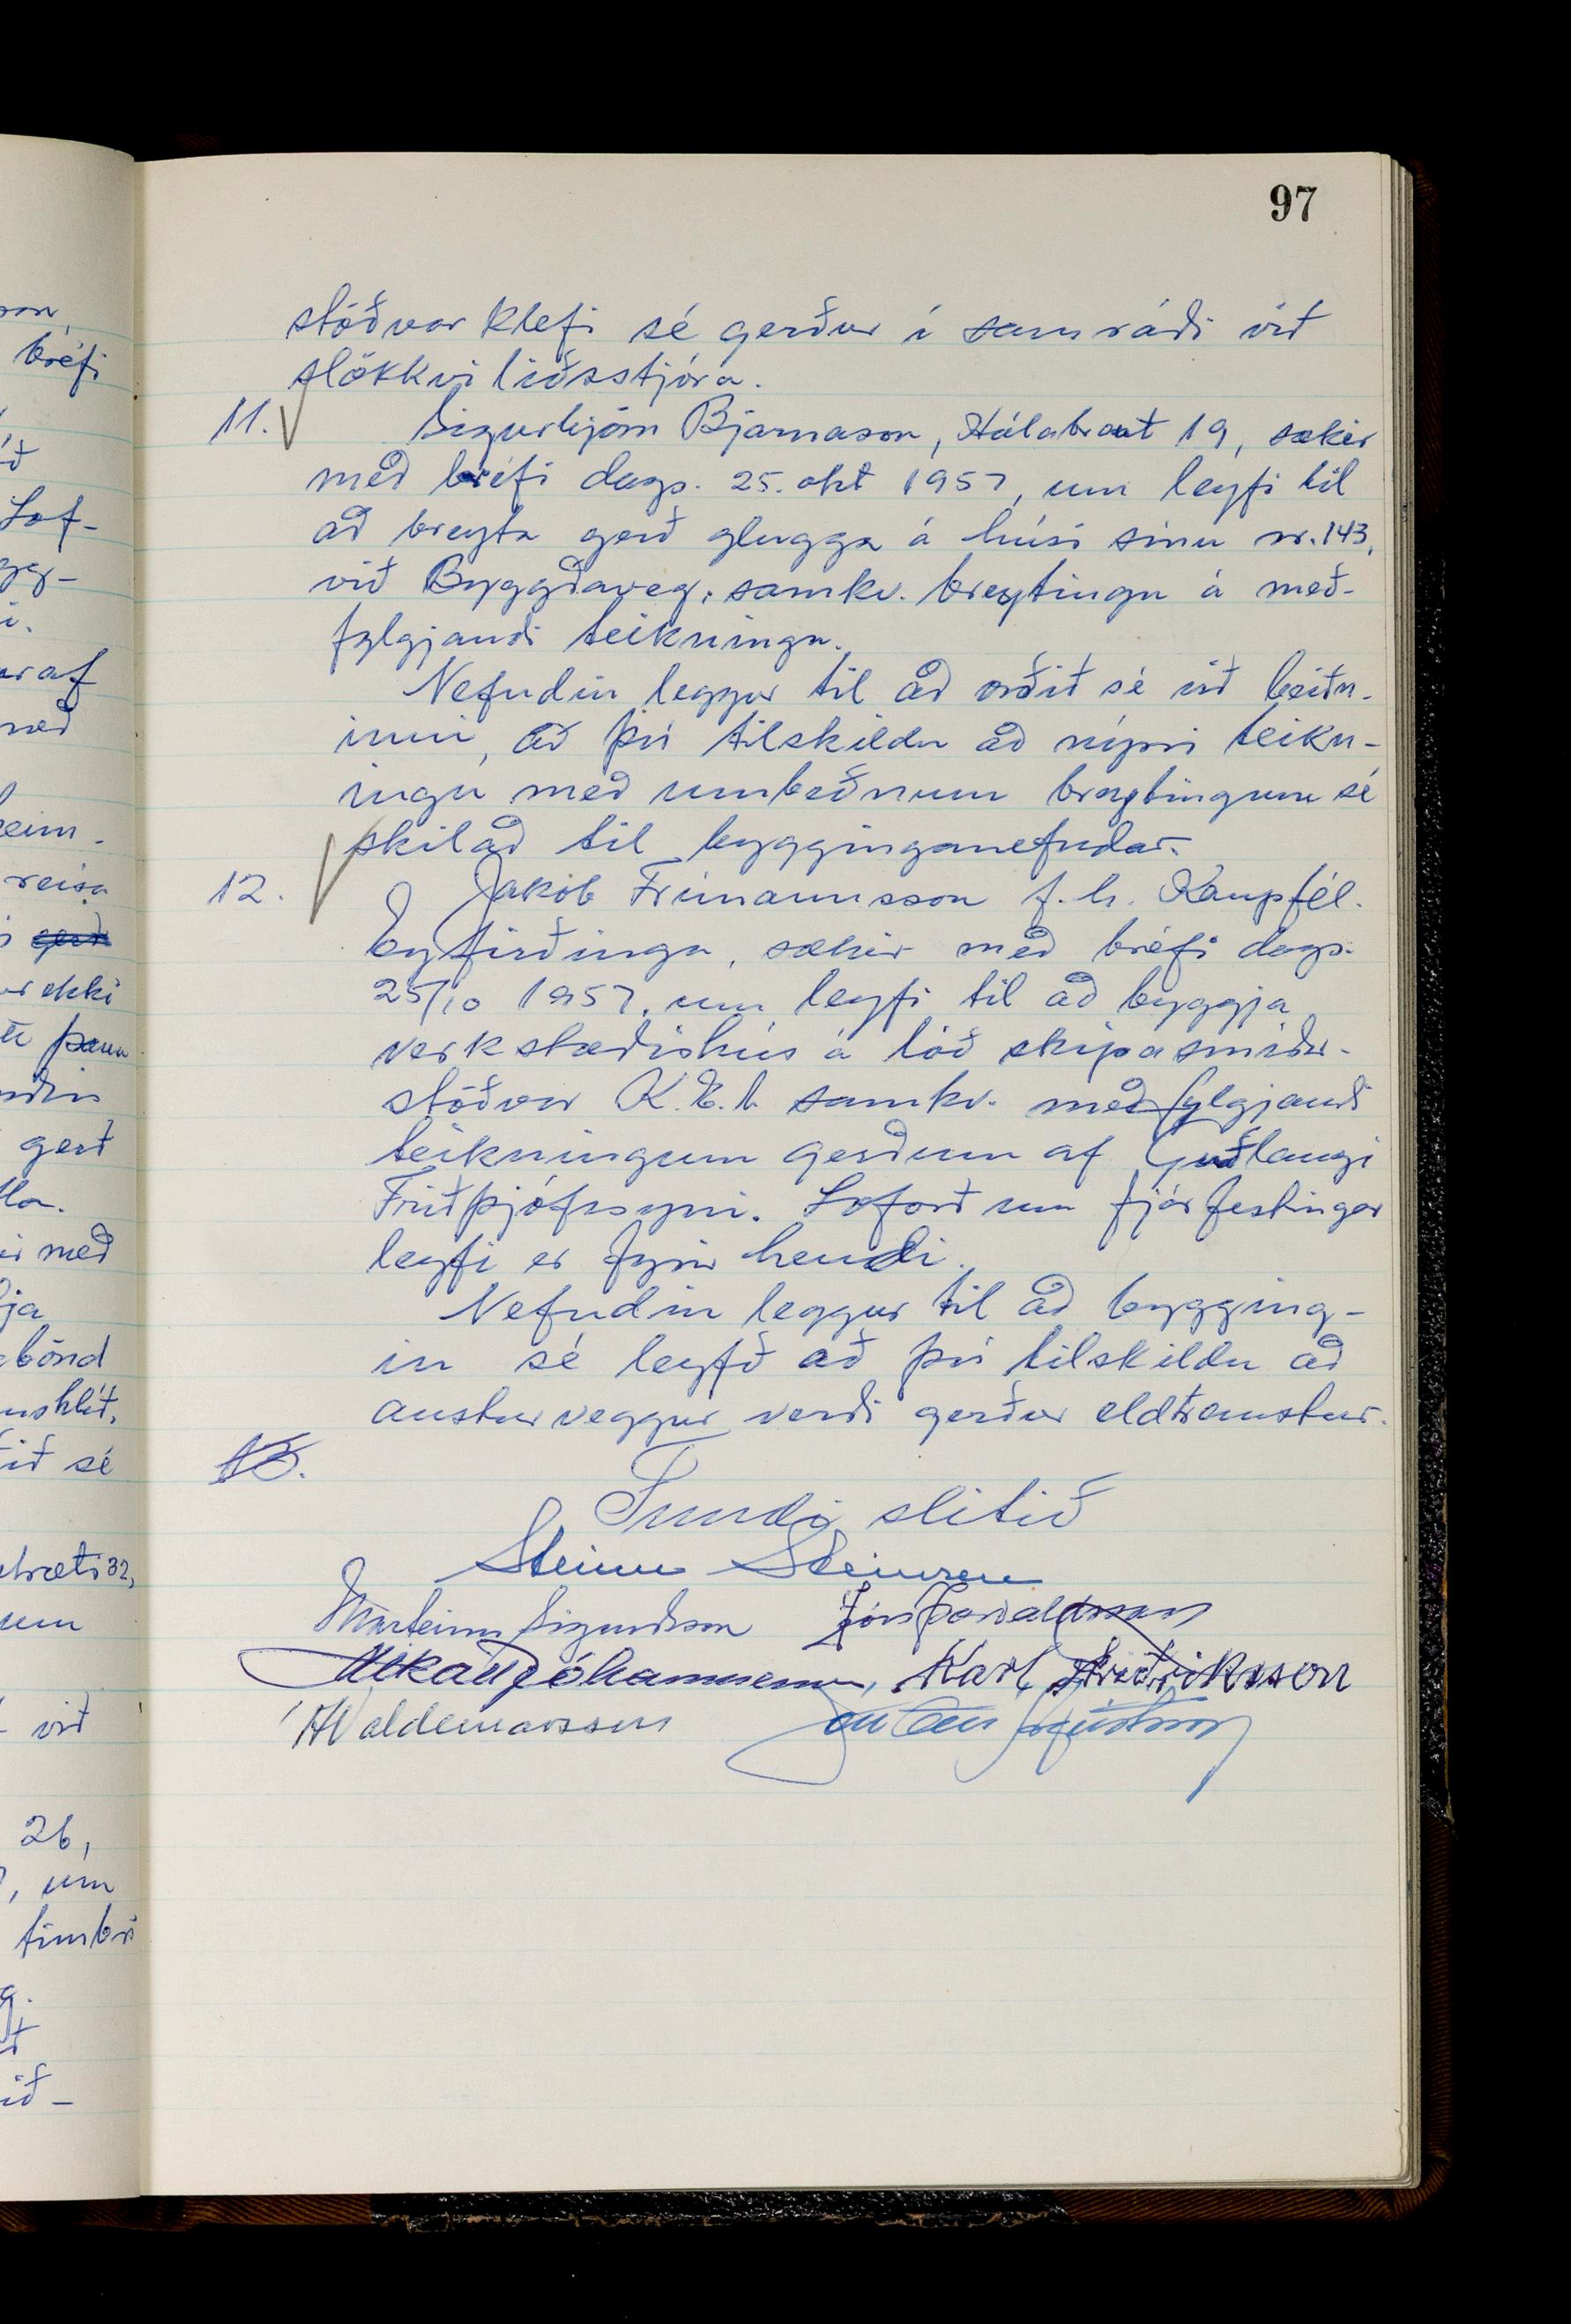 97
stöðvar klefi sé gerður í samráði við
slökkviliðsstjóra.
11. Sigurbjörn Bjarnason, Hólabraut 19, sækir
með bréfi dags. 25. okt 1957, um leyfi til
að breyta gerð glugga á húsi sínu nr. 143,
við Byggðaveg, samkv. breytingu á með-
fylgjandi teikningu.
Nefndin leggur til að orðið sé við beiðn-
inni, að því tilskildu að nýrri teikn-
ingu með umbeðnum breytingum sé
skilað til bygginganefndar.
12. Jakob Frímannsson f.h. Kaupfél.
Eyfirðinga, sækir með bréfi dags.
25/10 1957. um leyfi til að byggja
verkstæðishús á lóð skipasmíða-
stöðvar K.E.A samkv. meðfylgjandi
teikningum gerðum af Guðlaugi
Friðþjófssyni. Loforð um fjárfestingar
leyfi er fyrir hendi.
Nefndin leggur til að bygging-
in sé leyfð að því tilskildu að
austurveggur verði gerður eldtraustur.
13.
Fundi slitið
Steinn Steinsen
Marteinn Sigurðsson Jón Þorvaldsson
Mikael Jóhannesson, Karl Friðriksson
Waldemarsson
son,
bréfi
Lof-
ygg-
með
heim-
reisa
ekki
gert
með
bönd
sé
stræti 32,
um
við
26,
, um
timbri